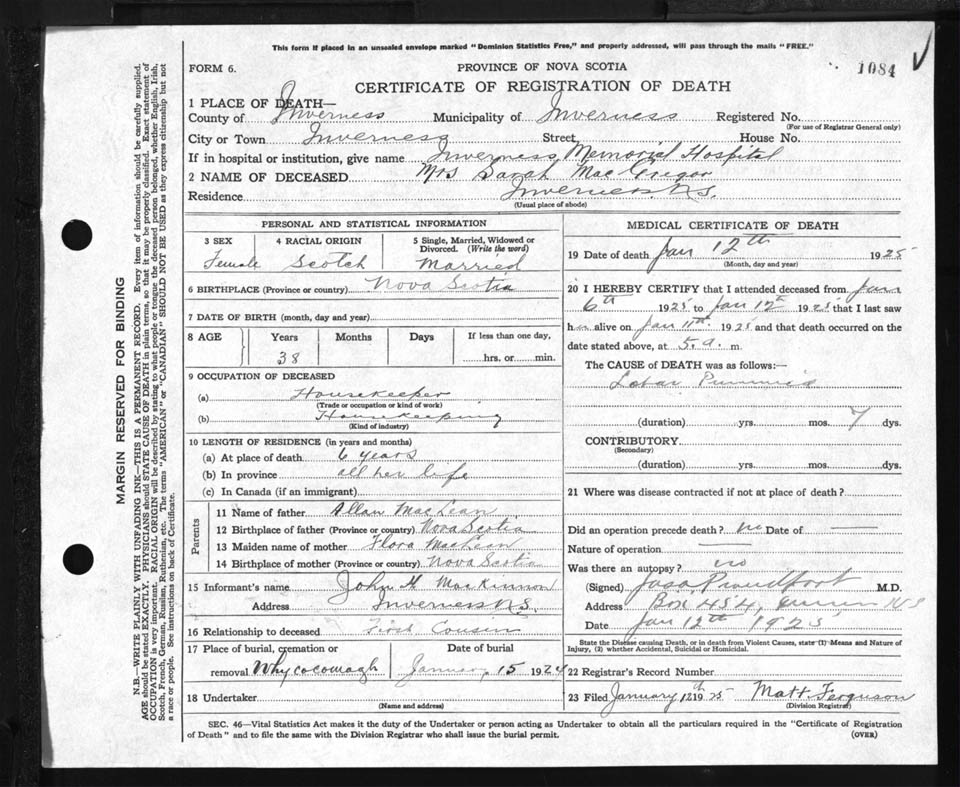 This form if placed in an unsealed envelope marked "Dominion Statistics Free," and properly addressed, will pass through the mails "FREE."
FORM 6.
PROVINCE OF NOVA SCOTIA
1084
CERTIFICATE OF REGISTRATION OF DEATH
1 PLACE OF DEATH—
County of Inverness Municipality of Inverness Registered No.
(For use of Registrar General only)
City or Town Inverness Street, House No.
If in hospital or institution, give name Inverness Memorial Hospital
2 NAME OF DECEASED Mrs Sarah MacGregor
Residence Inverness N.S.
(Usual place of abode)
PERSONAL AND STATISTICAL INFORMATION
3 SEX 4 RACIAL ORIGIN 5 Single, Married, Widowed or Divorced. (Write the word)
Female Scotch Married
6 BIRTHPLACE (Province or country) Nova Scotia
7 DATE OF BIRTH (month, day and year)
8 AGE Years Months Days If less than one day,
38 hrs. or min.
9 OCCUPATION OF DECEASED
(a) Housekeeper
(Trade or occupation or kind of work)
(b) Housekeeping
(Kind of industry)
10 LENGTH OF RESIDENCE (in years and months)
(a) At place of death 6 years
(b) In province all her life
(c) In Canada (if an immigrant)
Parents
11 Name of father Allan MacLean
12 Birthplace of father (Province or country) Nova Scotia
13 Maiden name of mother Flora MacLean
14 Birthplace of mother (Province or country) Nova Scotia
15 Informant's name John H. MacKinnon
Address Inverness N.S.
16 Relationship to deceased First Cousin
17 Place of burial, cremation or removal Whycocomagh
Date of burial
January 15 1924
18 Undertaker
(Name and address)
MEDICAL CERTIFICATE OF DEATH
19 Date of death Jan 12th 1925
(Month, day and year)
20 I HEREBY CERTIFY that I attended deceased from Jan
6th 1925 to Jan 12th 1925 that I last saw
her alive on Jan 11th 1925 and that death occurred on
date stated above, at 5.a. m.
The CAUSE of DEATH was as follows:—
Lobar
(duration) yrs. mos. 7 dys.
CONTRIBUTORY
(Secondary)
(duration) yrs. mos. dys.
21 Where was disease contracted if not at place of death?
Did an operation precede death? no Date of
Nature of operation
Was there an autopsy? no
(Signed) Jas. Proudfoot M.D.
Address Box 454, N S
Date Jan 12th 1925
State the Disease causing Death, or in death from Violent Causes, state (1) Means and Nature of Injury, (2) whether Accidental, Suicidal or Homicidal.
22 Registrar's Record Number
23 Filed January 1925 Matt. Ferguson
(Division Registrar)
SEC. 46—Vital Statistics Act makes it the duty of the Undertaker or person acting as Undertaker to obtain all the particulars required in the "Certificate of Registration
of Death" and to file the same with the Division Registrar who shall issue the burial permit.
(OVER)
MARGIN RESERVED FOR BINDING
N.B.—WRITE PLAINLY WITH UNFADING INK—THIS IS A PERMANENT RECORD. Every item of information should be carefully supplied.
AGE should be stated EXACTLY. PHYSICIANS should STATE CAUSE OF DEATH in plain terms, so that it may be properly classified. Exact statement of
OCCUPATION is very important. RACIAL ORIGIN will be described by stating to what people or tongue the deceased person belonged, whether English, Irish,
Scotch, French, German, Russian, Ruthenian, etc. The terms "AMERICAN" or "CANADIAN" SHOULD NOT BE USED as they express citizenship but not
a race or people. See instructions on back of Certificate.